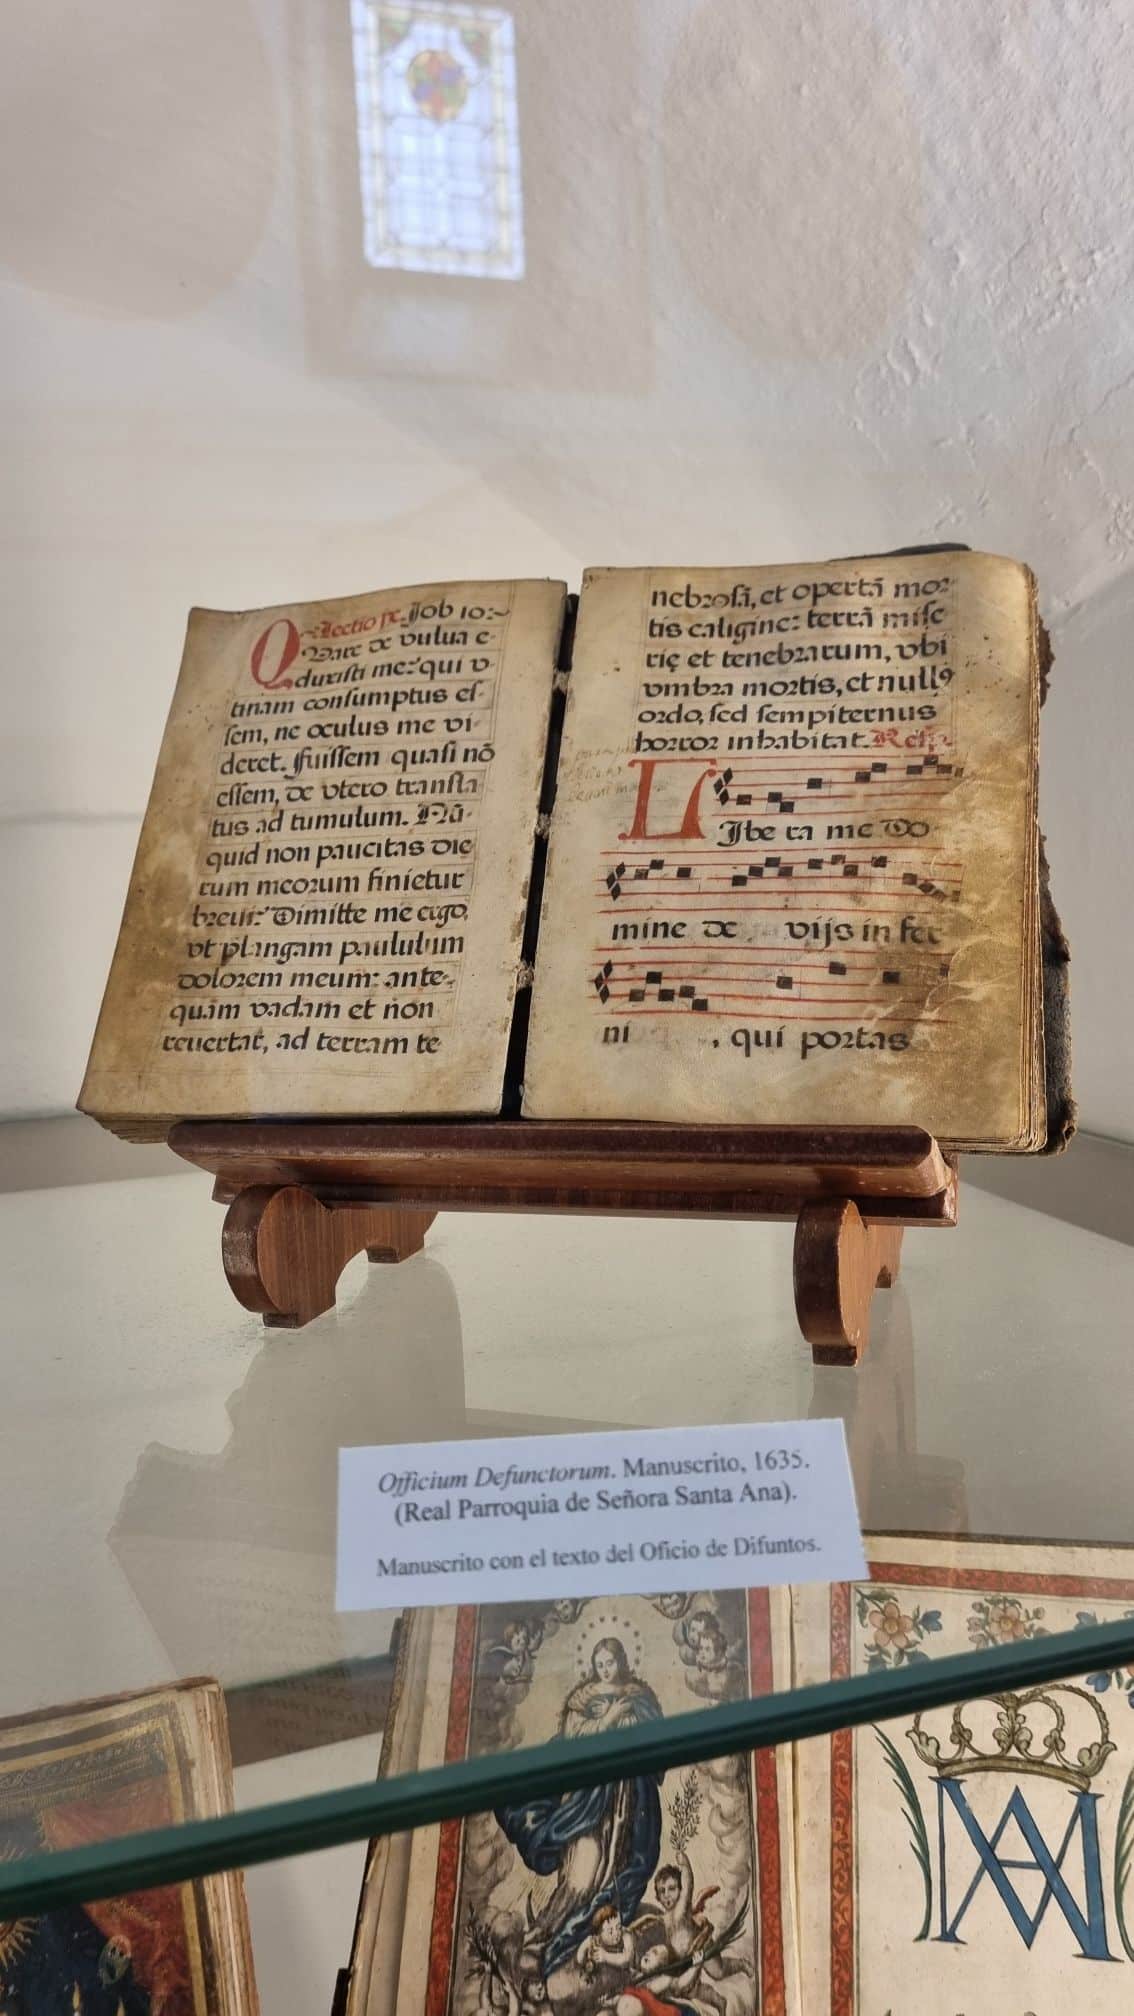 Lectio jx. Job 10:
Quare de vulua e-
duxisti me? qui v-
tinam consumptus es-
sem, ne oculus me vi-
deret. Fuissem quasi nõ
essem, de vtero transla-
tus ad tumulum. Nũ-
quid non paucitas die
rum meorum finietur
breui? Dimitte me ergo,
vt plangam paululum
dolorem meum: ante-
quàm vadam et non
reuertar, ad terram te
nebrosã, et opertã mor-
tis caligine: terrã mise
rię et tenebrarum, vbi
vmbra mortis, et nullꝰ
ordo, sed sempiternus
horror inhabitat. Resp.
LIbe ra me Do-
mine de vijs in fer
ni , qui portas
Officium Defunctorum. Manuscrito, 1635.
(Real Parroquia de Señora Santa Ana).
Manuscrito con el texto del Oficio de Difuntos.